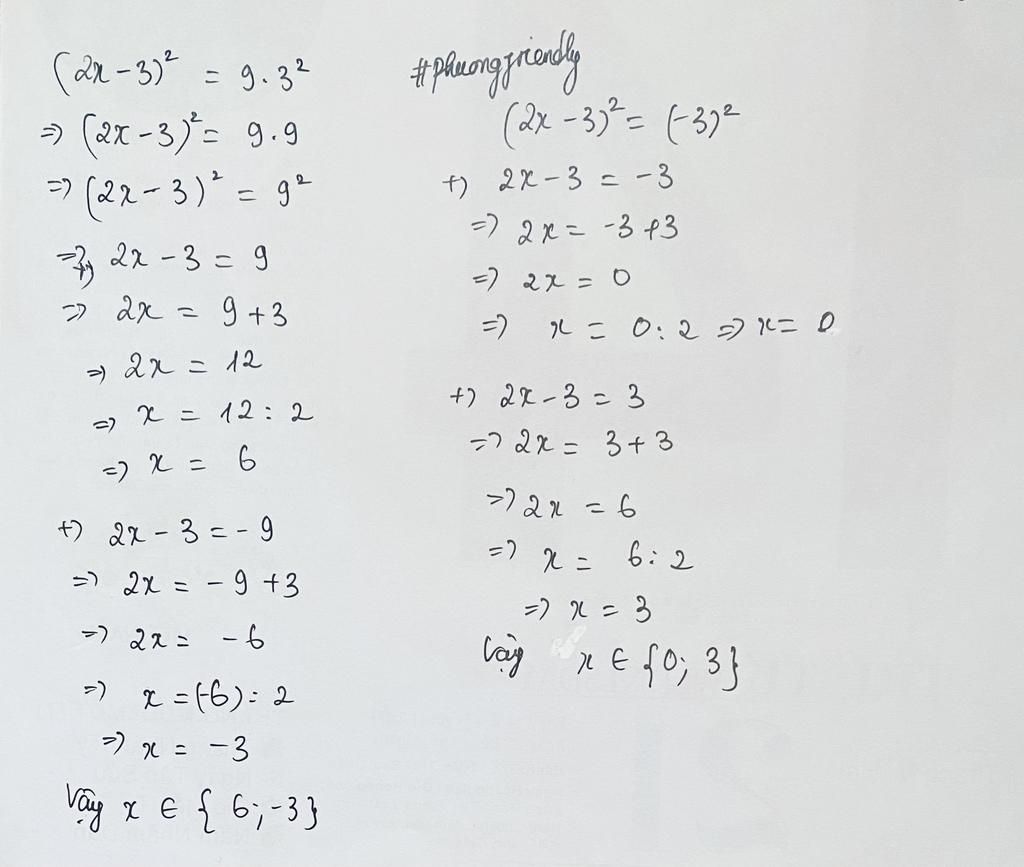 (2x - 3)² = 9.3²
=> (2x - 3)² = 9.9
=> (2x - 3)² = 9²
=> +) 2x - 3 = 9
=> 2x = 9 + 3
=> 2x = 12
=> x = 12 : 2
=> x = 6
+) 2x - 3 = - 9
=> 2x = - 9 + 3
=> 2x = - 6
=> x = (-6) : 2
=> x = - 3
Vậy x ∈ { 6; -3}
#phuongfriendly
(2x - 3)² = (-3)²
+) 2x - 3 = - 3
=> 2x = -3 + 3
=> 2x = 0
=> x = 0 : 2 => x = 0
+) 2x - 3 = 3
=> 2x = 3 + 3
=> 2x = 6
=> x = 6 : 2
=> x = 3
Vậy x ∈ {0; 3}